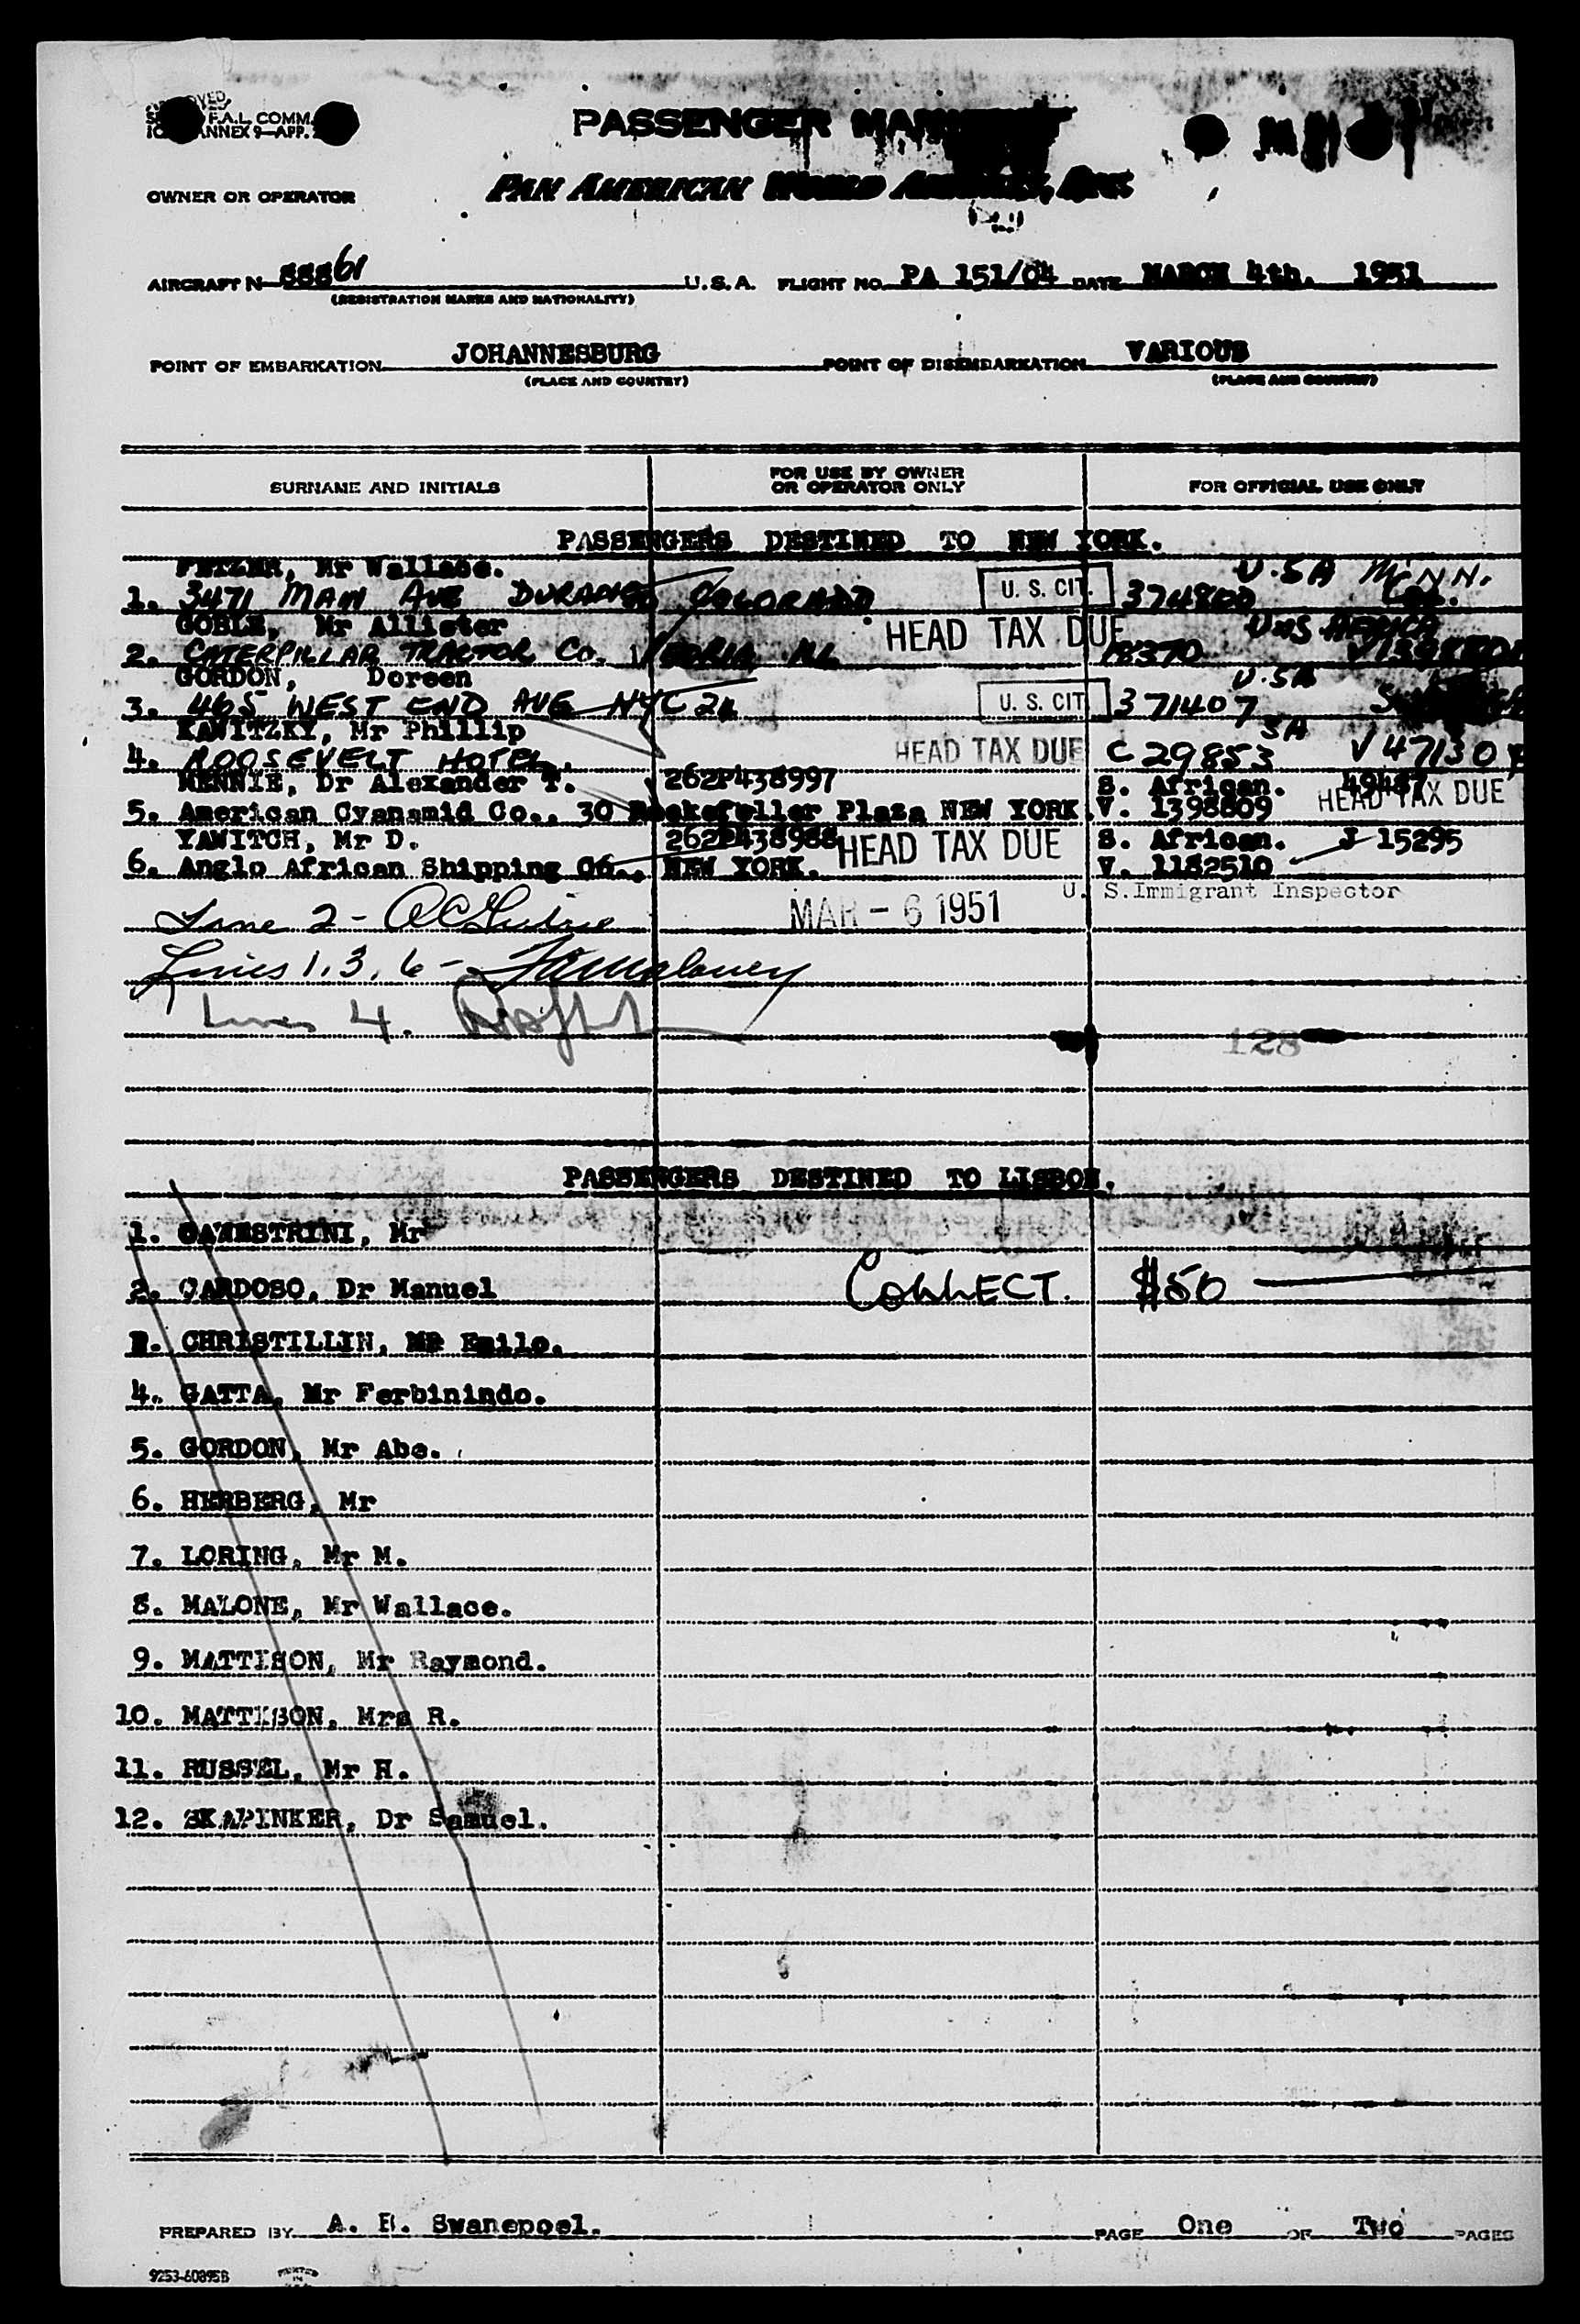 F.A.L. COMM.
ANNEX 9—APP.
PASSENGER
OWNER OR OPERATOR
PAN AMERICAN WORLD
AIRCRAFT N 88861 U.S.A. FLIGHT NO. PA 151/04 DATE MARCH 4th. 1951
(REGISTRATION MARKS AND NATIONALITY)
POINT OF EMBARKATION JOHANNESBURG POINT OF DISEMBARKATION VARIOUS
(PLACE AND COUNTRY) (PLACE AND COUNTRY)
SURNAME AND INITIALS FOR USE BY OWNER OR OPERATOR ONLY FOR OFFICIAL USE ONLY
PASSENGERS DESTINED TO NEW YORK.
FETZER, Mr Wallace. U.S.A MINN.
1. 3471 MAIN AVE DURANGO COLORADO. U. S. CIT. 374800
GOBLE, Mr Allister HEAD TAX DUE
2. CATERPILLAR TRACTOR CO. PEORIA ILL 18370
GORDON, Doreen U.SA
3. 465 WEST END AVE NYC 24 U. S. CIT 371407
KAWITZKY, Mr Phillip SA
4. ROOSEVELT HOTEL. HEAD TAX DUE C 29853 V 47130
MENNIE, Dr Alexander T. 262P438997 S. African. 49487
5. American Cyanamid Co., 30 Rockefeller Plaza NEW YORK. V. 1398809 HEAD TAX DUE
YAWITCH, Mr D. 262P438988 HEAD TAX DUE S. African. J 15295
6. Anglo African Shipping Co., NEW YORK. V. 1182510
U. S. Immigrant Inspector
Line 2 - MAR - 6 1951
Lines 1, 3, 6 -
Lines 4.
128
PASSENGERS DESTINED TO LISBON.
1. CANESTRINI, Mr
2. CARDOSO, Dr Manuel CONNECT. $50
3. CHRISTILLIN, MR Emilo.
4. GATTA, Mr Ferbinindo.
5. GORDON, Mr Abe.
6. HERBERG, Mr
7. LORING, Mr M.
8. MALONE, Mr Wallace.
9. MATTISON, Mr Raymond.
10. MATTISON, Mrs R.
11. RUSSEL, Mr H.
12. SKAPINKER, Dr Samuel.
PREPARED BY A. E. Swanepoel. PAGE One OF Two PAGES
9253-60895B